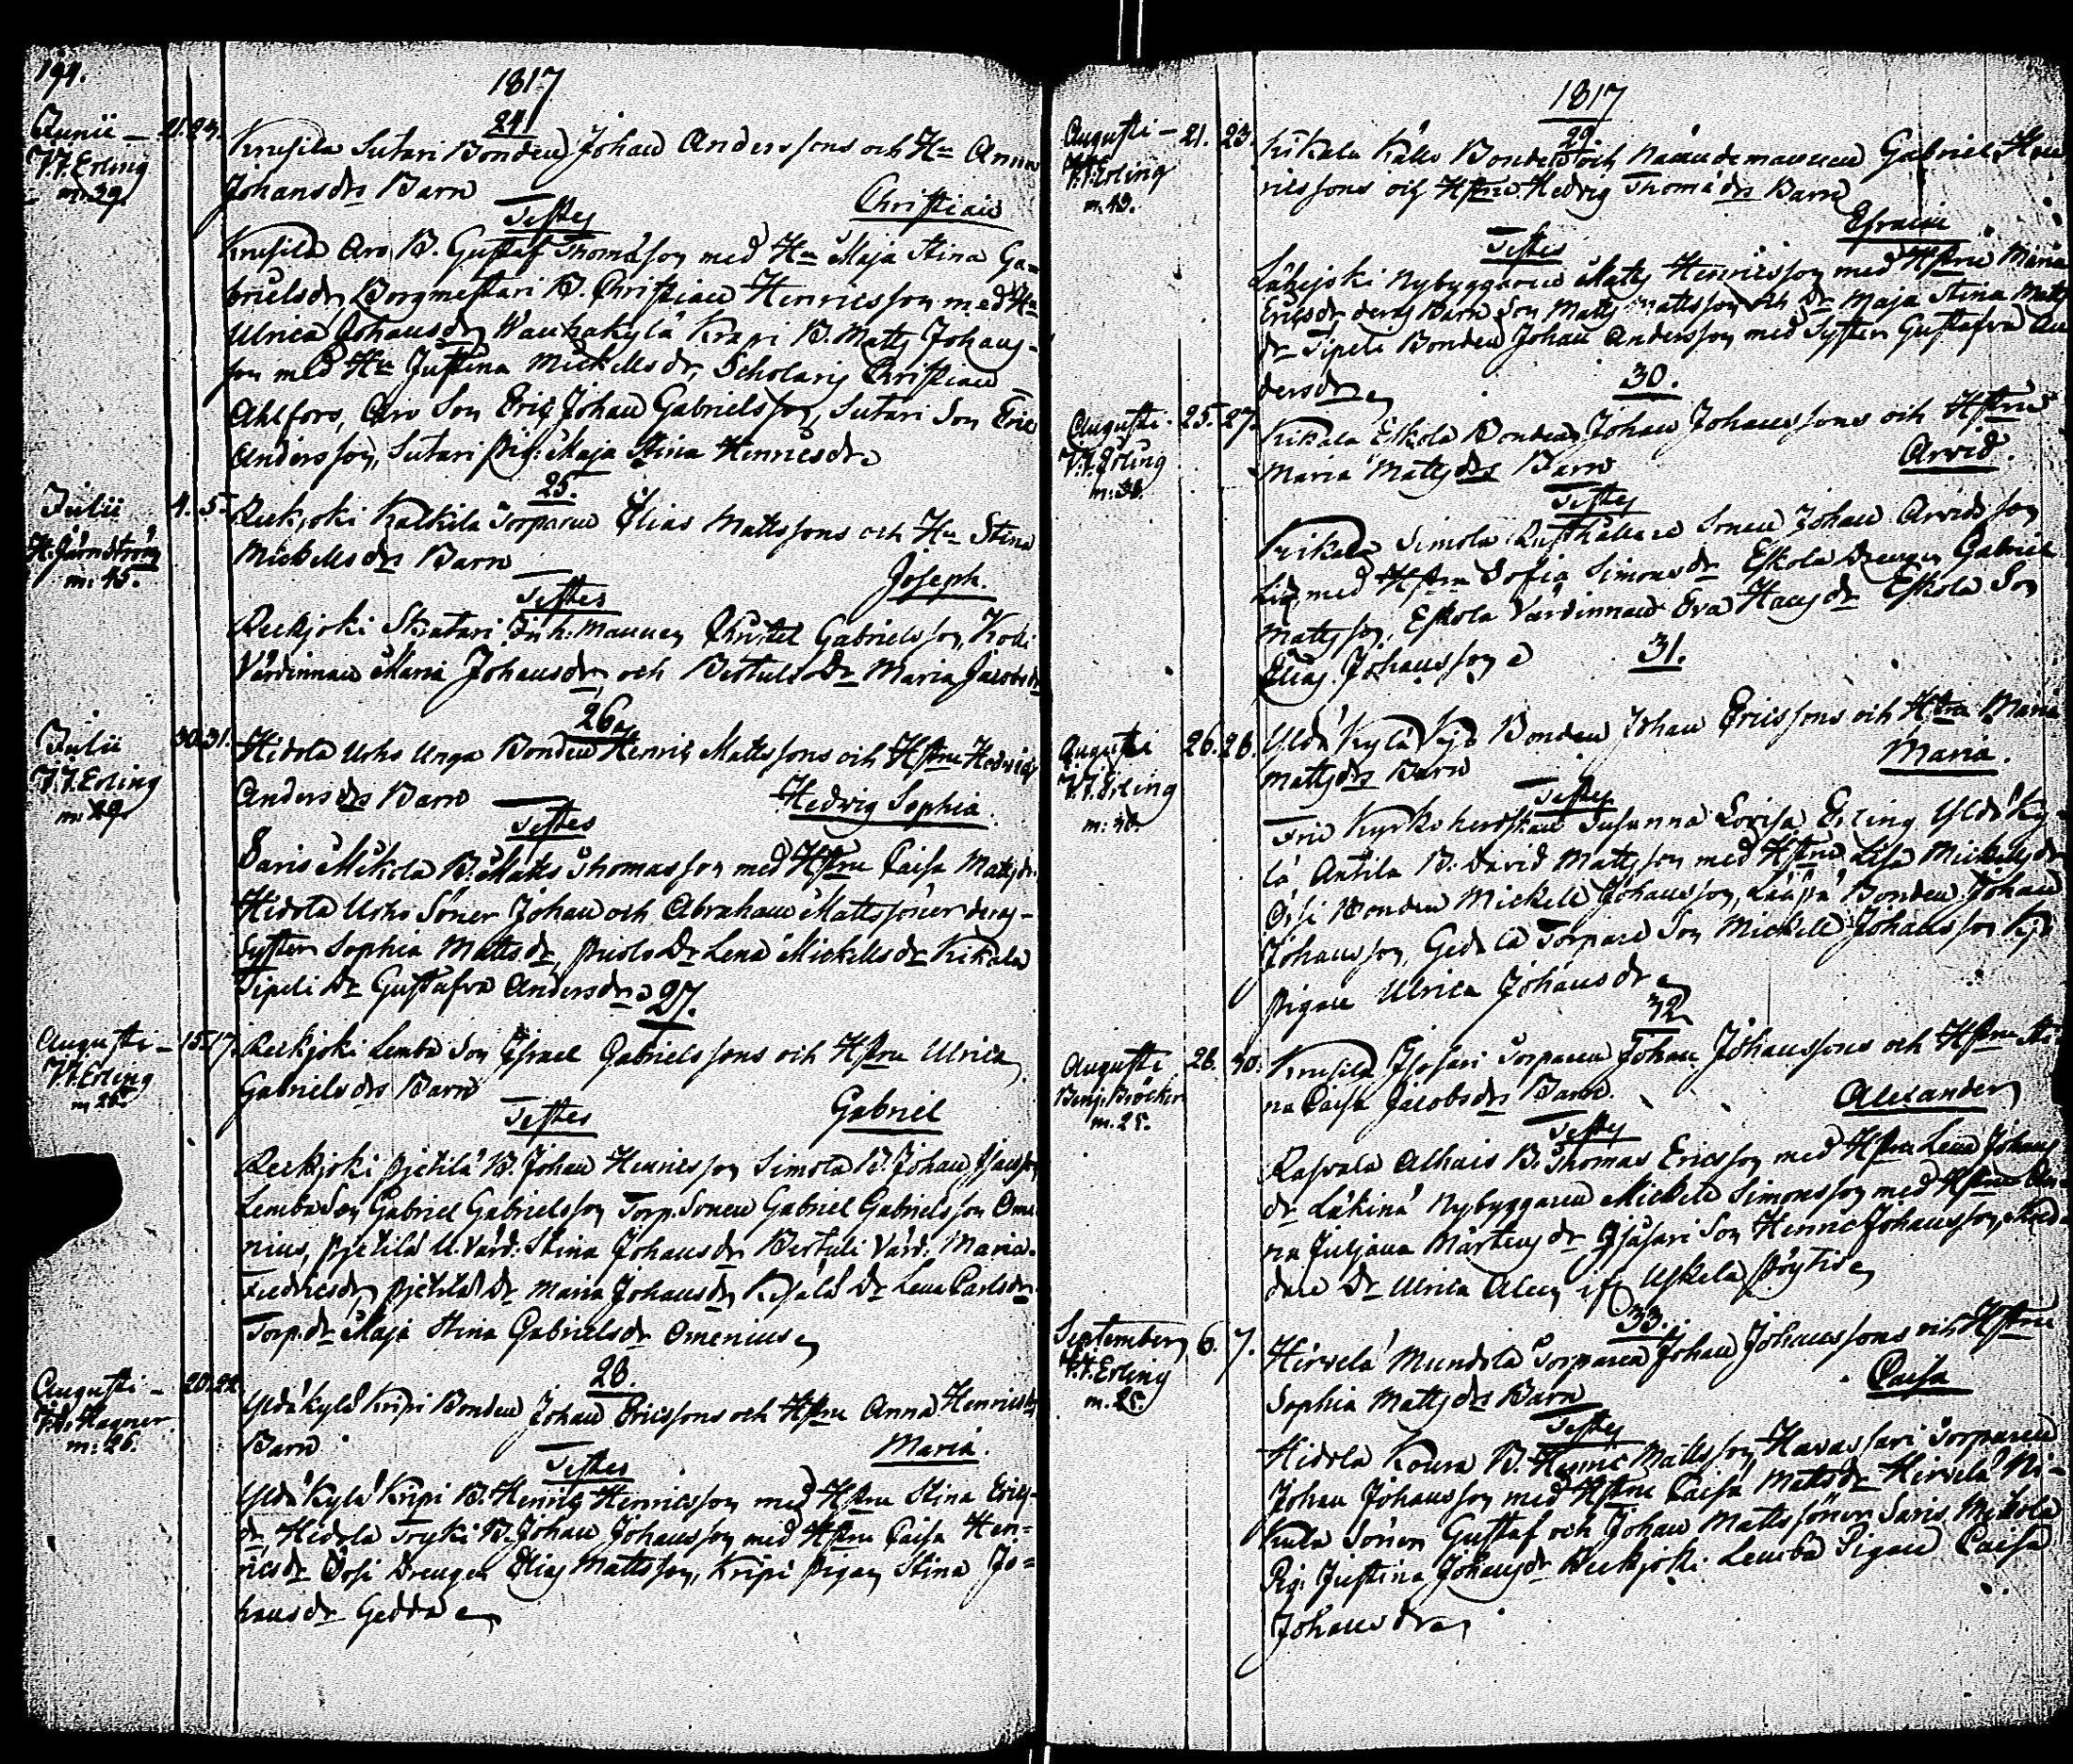 194.
1817
24
Junii — 21. 23. Krusila Sutari Bonden Johan Anderssons och Hu Anna
V.F. Erling
m: 39. Johansdrs Barn
Testes Christian
Krusila Aro B. Gustaf Thomasson med Hu Maja Stina Ga-
brielsdr, Borgmestari B. Christian Henricsson med Hu
Ulrica Johansdr, Wauhakylä Krapi B. Matts Johans-
son med Hu Justina Michelsdr, Scholaris Christian
Ahlfors, Aro Son Eric Johan Gabrielsson, Sutari Son Eric
Andersson, Sutari Pig: Maja Stina Henricsdr
25.
Julii 4. 5. Reckjoki Kalkila Torparen Elias Mattssons och Hu Stina
H. Järnström
m: 45. Mickelsdrs Barn
Testes Joseph.
Reckjoki Skratari Inh: mannen Christel Gabrielsson, Koli
Värdinnan Maria Johansdr, och Bertuls Dr Maria Jacobsdr
26
Julii 30. 31. Hidola Uoho Unga Bonden Henric Mattssons och Hstru Hedvig
V.F. Erling
Andersdrs Barn Hedvig Sophia
m: 29.
Testes
Saris Mikola B. Matts Thomasson med Hstru Caisa Mattsdr.
Hidola Uoho Söner Johan och Abraham Mattssöner deras
Syster Sophia Mattsdr, Dr Lena Mickelsdr Kikala
Sipeli Dr Gustafva Andersdr
27.
Augusti — 15. 17. Reckjoki Lemba Son Israel Gabrielssons och Hstru Ulrica
V.F. Erling
m. 28. Gabrielsdrs Barn
Testes Gabriel
Reckjoki Pietilä B. Johan Henricsson Simola B. Johan
Lemba Son Gabriel Gabrielsson Torp. Sonen Gabriel Gabrielsson Ome-
nius, Pietilä U. Värd: Stina Johansdr Bertuli Värd: Maria
Fredricsdr, Pietilä Dr Maria Johansdr Dr Lena Carlsdr
Torp. dr Maja Stina Gabrielsdr Omenius
28.
Augusti — 20. 22. Yldäkylä Kripi Bonden Johan Ericssons och Hstru Anna Henricsdrs
Hagner
m: 26. Barn Maria.
Testes
Yldäkylä Kripi B. Henric Henricsson med Hstru Stina Erics-
dr, Hidola Tryki B. Johan Johansson med Hstru Caisa Hen-
ricsdr Drengen Elias Mattsson, Kripi Pigan Stina Jo-
hansdr Gedda
1817
29.
Augusti — 21. 23. Kikala Källo Bonden och Nämndemannen Gabriel Hen-
V.F. Erling
m. 43. ricssons och Hstru Hedvig Thomädrs Barn
Efraim
Testes
Läkejoki Nybyggaren Matts Henricsson med Hstru Maria
Ericsdr deras Barn Son Matts Mattsson och Dr Maja Stina Matts-
dr Sipeli Bonden Johan Andersson med Syster Gustafva An-
dersdr
30.
Augusti 25. 27. Kikala Eskola Bonden Johan Johanssons och Hstru
V.F. Erling
m: 38. Maria Mattsdrs Barn Arvid.
Testes
Kikala Simola Rusthållare Sonen Johan Arvidsson
med Hstru Sofia Simonsdr Eskola Drengen Gabriel
Mattsson, Eskola Värdinnan Eva Hansdr Eskola Son
Elias Johansson
31.
Augusti 26. 28. Yldäkylä Bonden Johan Ericssons och Hstru Maria
V.F. Erling
m: 38. Mattsdrs Barn Maria.
Testes
Kyrkoherdskan Susanna Lovisa Erling Yldäky-
lä Antila B. David Mattsson med Hstru Lisa Mickelsdr
Bonden Mickell Johansson, Bonden Johan
Johansson, Torpare Son Mickell Johansson
Pigan Ulrica Johansdr
32
Augusti 28. 30. Krusila Isosari Torparen Johan Johanssons och Hstru Sti-
Benj. Bröcker
m. 25. na Caisa Jacobsdrs Barn. Alexander
Testes
Rasvala Alhais B. Thomas Ericsson med Hstru Lena Johans-
dr Läkinä Nybyggaren Mickell Simonsson med Hstru An-
na Juliana Mårtensdr Isosari Son Henric Johansson,
Dr Ulrica if Uskela Pöytis
33.
September 6. 7. Hirvelä Mundola Torparen Johan Johanssons och Hstru
V.F. Erling
m. 25. Sophia Mattsdrs Barn Caisa
Testes
Hidola Koura B. Henric Mattsson, Havassari Torparen
Johan Johansson med Hstru Caisa Mattsdr Hirvelä Ni-
kula Söner Gustaf och Johan Mattssöner Saris Mikola
Pig: Justina Johansdr Reckjoki Lemba Pigan Caisa
Johansdr